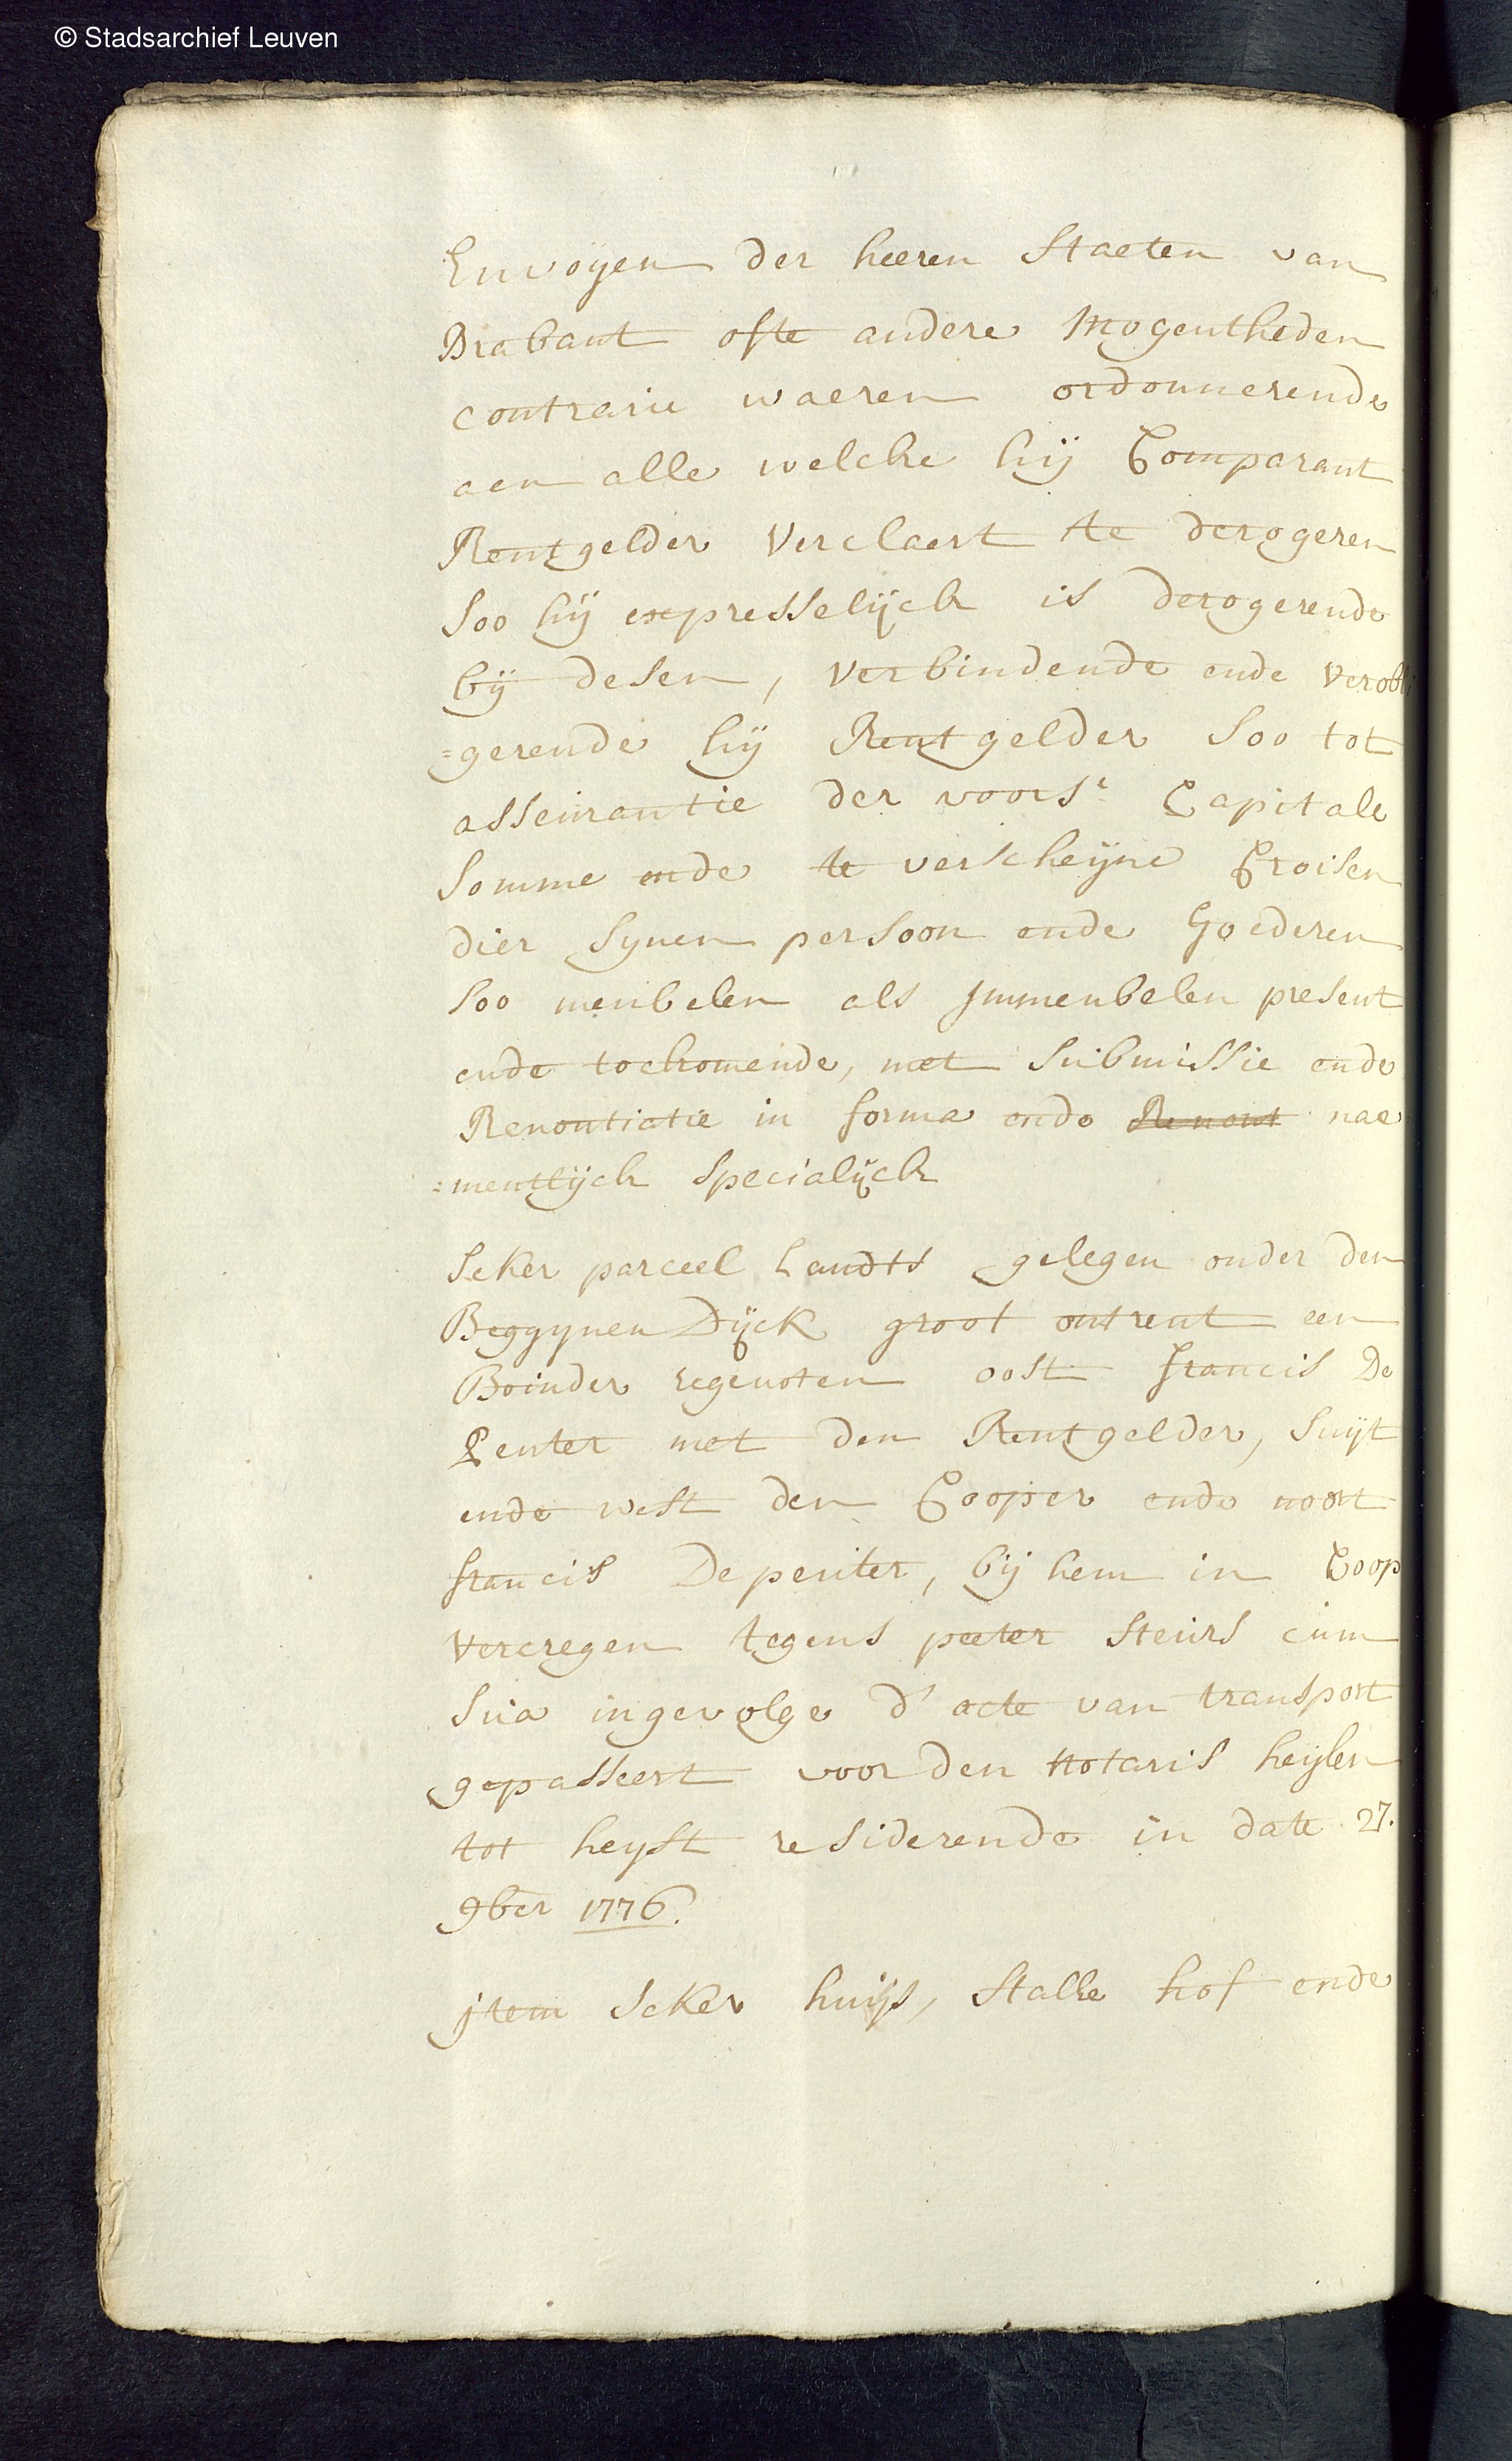 © Stadsarchief Leuven
Envoyen der heeren Staeten van
Brabant ofte andere Mogentheden
contrarie waeren ordonnerende
aen alle welcke hij Comparant
Rentgelder Verclaert te derogeren
Soo hij expresselijck is derogerende
bij desen, Verbindende ende verobli
=gerende hij Rentgelder Soo tot
asseurantie der voors.e Capitale
Somme ende te verscheijne Croisen
dier Synen persoon ende Goederen
Soo meubelen als Immeubelen present
ende tockomende, met Submissie ende
Renontiatie in forma ende Renont nae
=mentlijck Specialijck
Seker parceel Landts gelegen onder den
Beggynen Dijck groot ontrent een
Boinder regenoten oost francis De
Peuter met den Rentgelder, Suijt
ende west den Cooper ende noort
francis De peuter, bij hem in Coop
Vercregen tegens peeter Steurs cum
Sua ingevolge d' acte van transport
gepasseert voor den Notaris heylen
tot heyst residerende in date 27.
9ber 1776.
jtem Seker huijs, Stalle hof ende